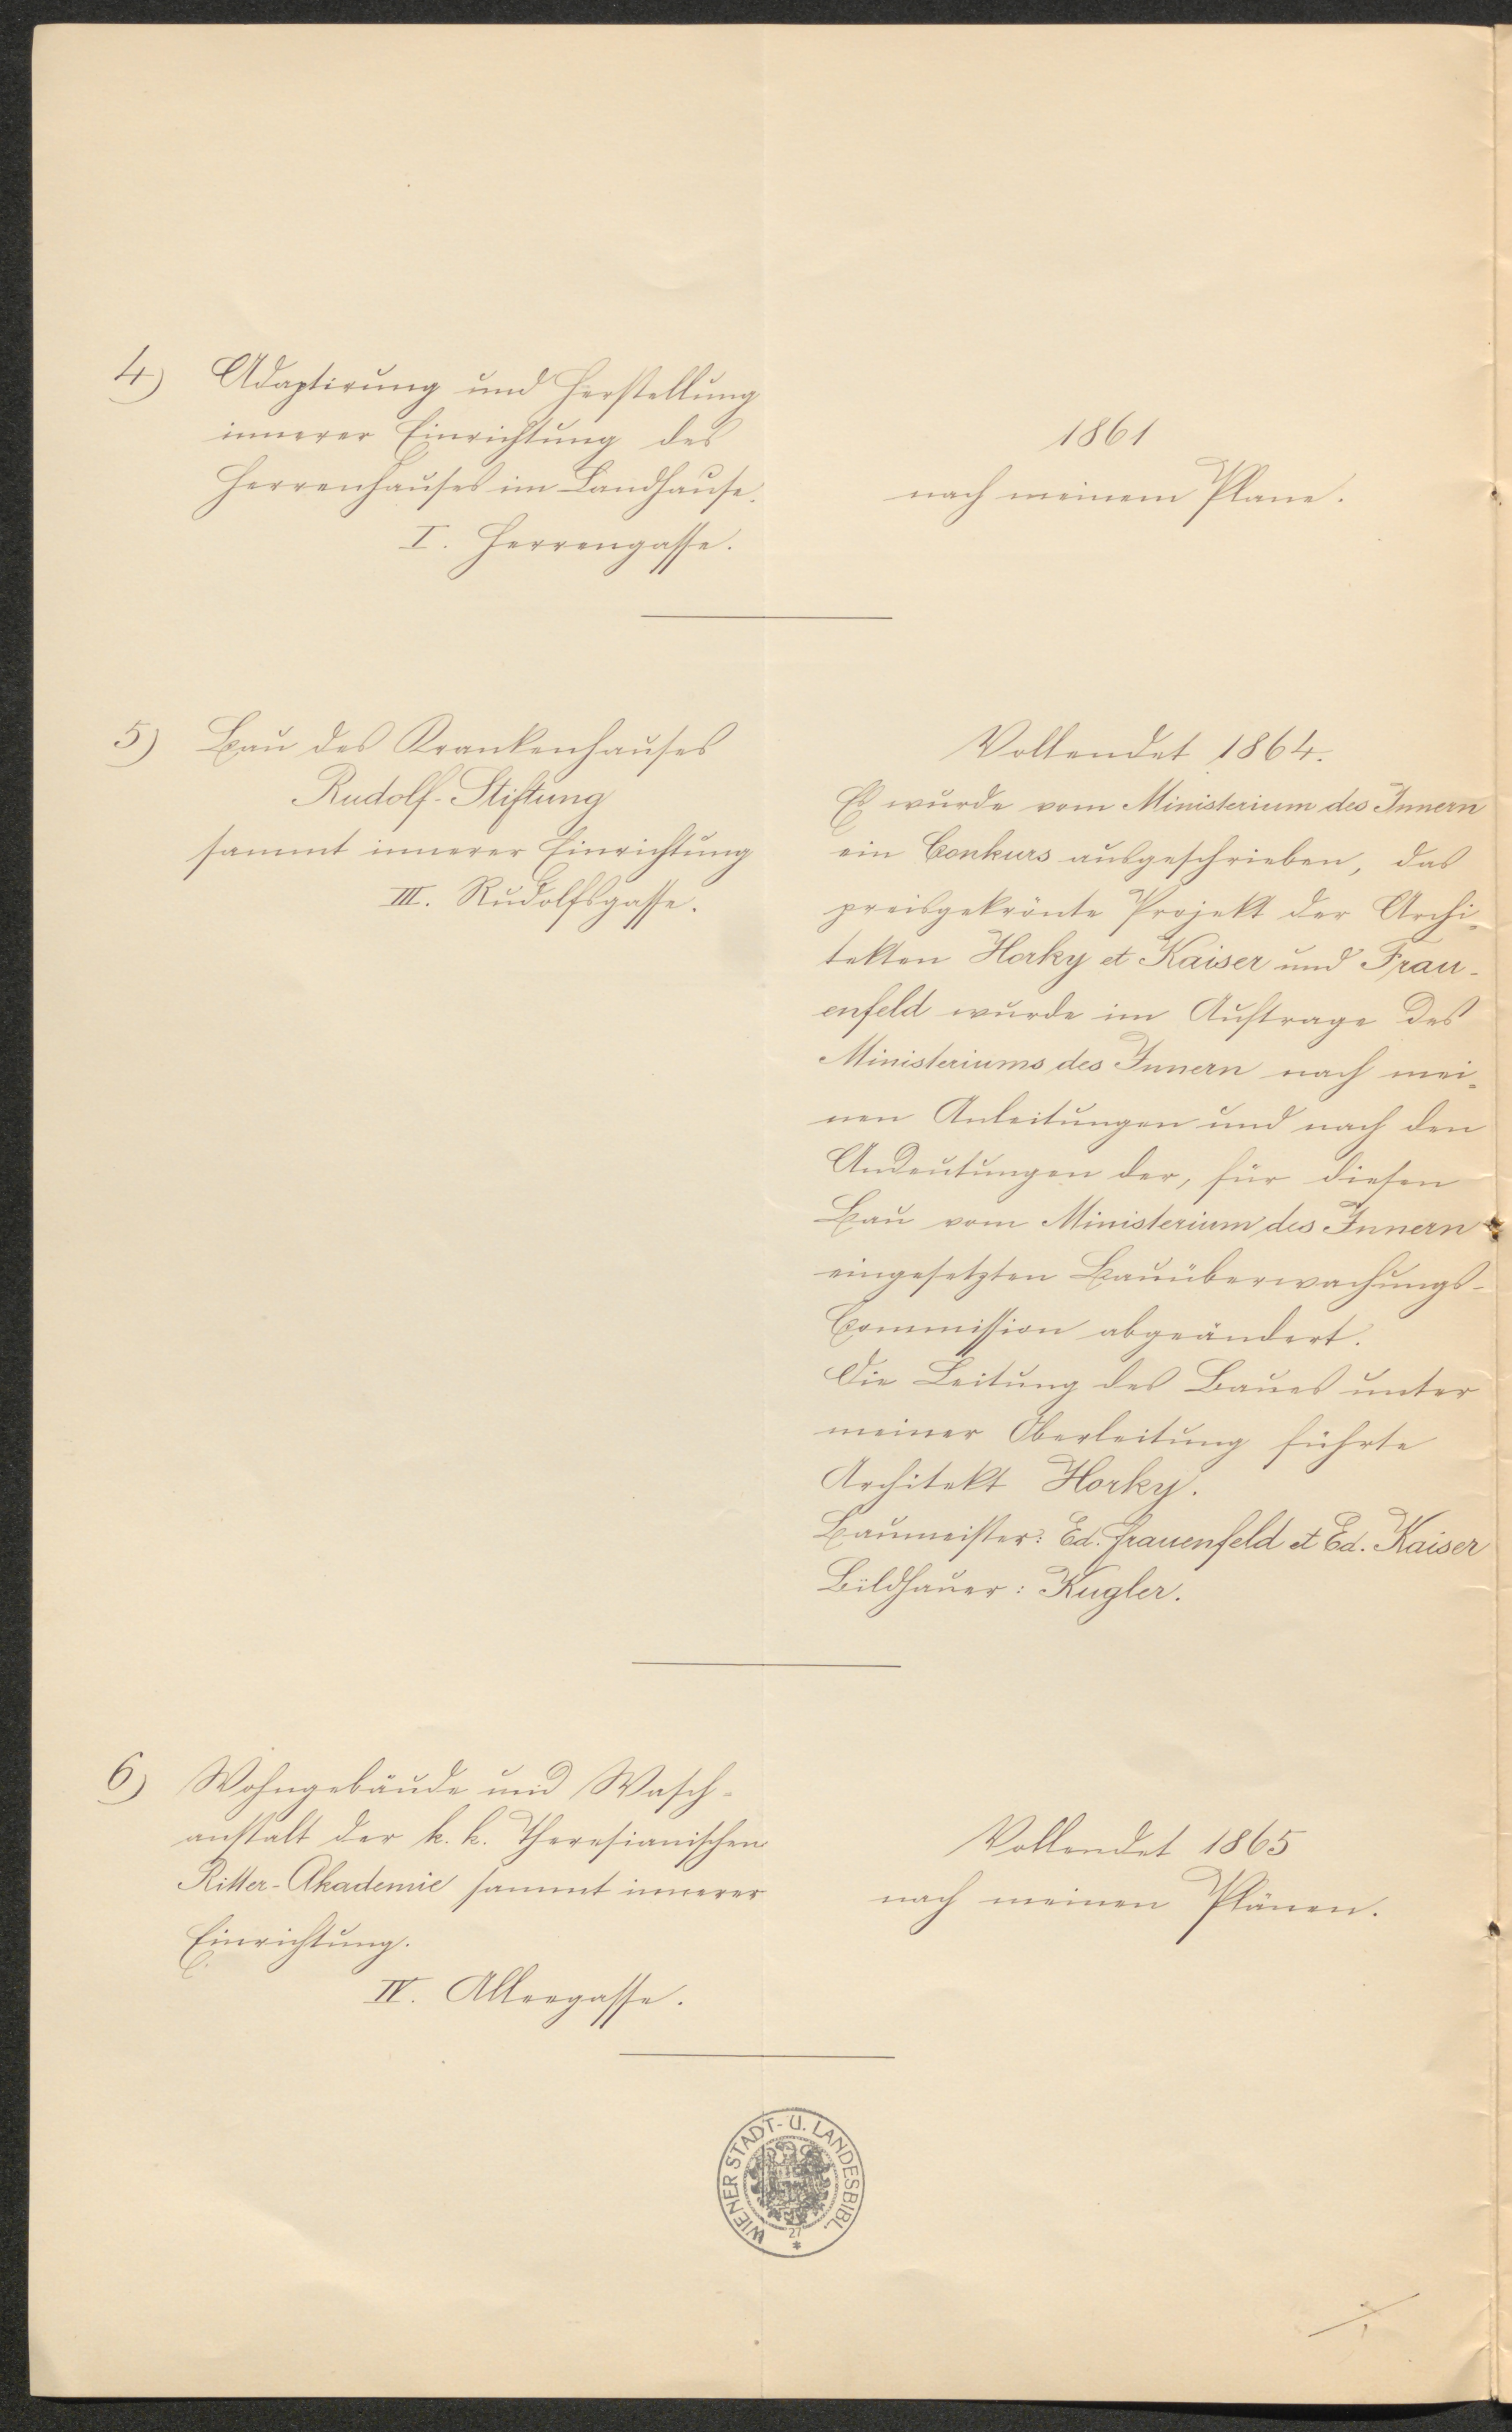 4) Adaptirung und Herstellung
innerer Einrichtung des
Herrenhauses im Landhause.
I. Herrengasse.
1861
nach meinem Plane.
5) Bau des Krankenhauses
Rudolf-Stiftung
sammt innerer Einrichtung
III. Rudolfsgasse.
Vollendet 1864.
Es wurde vom Ministerium des Innern
ein Conkurs ausgeschrieben, das
preisgekrönte Projekt der Archi-
tekten Horky et Kaiser und Frau-
enfeld wurde im Auftrage des
Ministeriums des Innern nach mei-
nen Anleitungen und nach den
Andeutungen der, für diesen
Bau vom Ministerium des Innern
eingesetzten Bauüberwachungs-
Commission abgeändert.
Die Leitung des Baues unter
meiner Oberleitung führte
Architekt Horky.
Baumeister: Ed. Frauenfeld et Ed. Kaiser
Bildhauer: Kugler.
6) Wohngebäude und Wasch-
anstalt der k. k. Theresianischen
Ritter-Akademie sammt innerer
Einrichtung.
IV. Alleegasse.
Vollendet 1865
nach meinen Plänen.
WIENER STADT- U. LANDESBIBL.
27